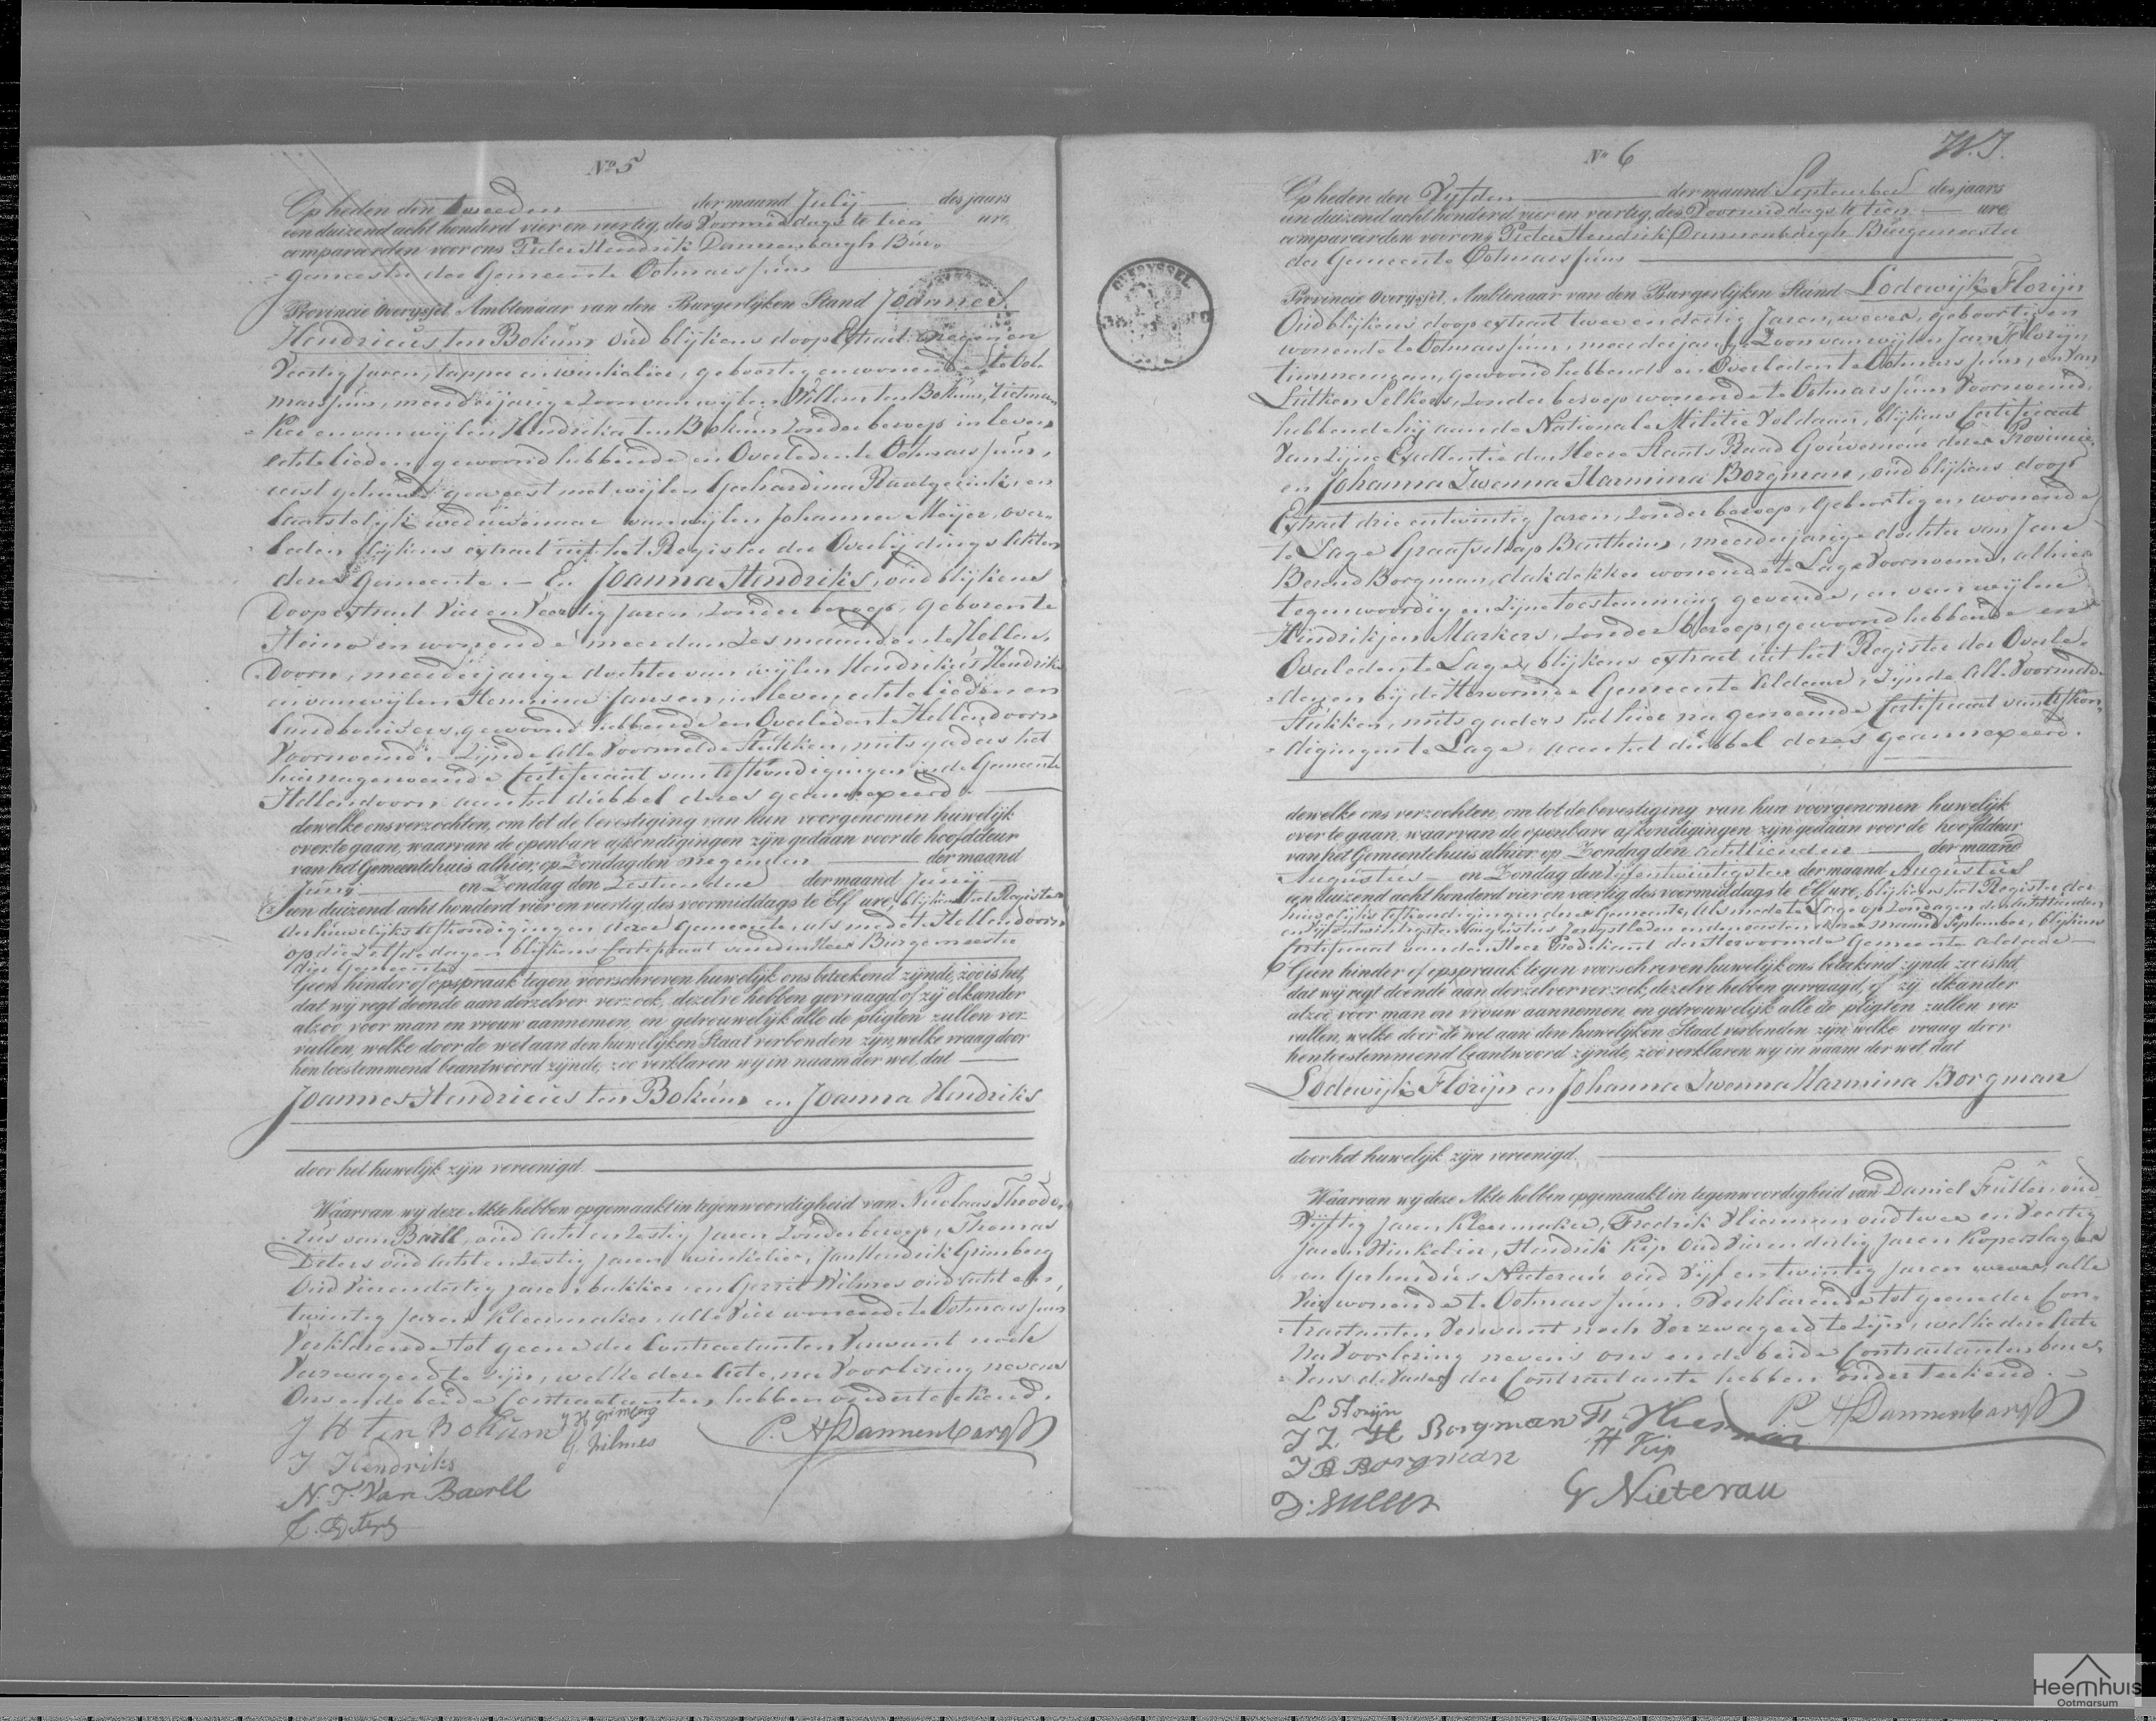 No 5
Op heden den tweeden der maand Julij des jaars
een duizend acht honderd vier en veertig, des Voormiddags te tien ure
compareerden voor ons Pieter Hendrik Dannenbargh Bur-
gemeester der Gemeente Ootmarssum
Provincie Overijssel, Ambtenaar van den Burgerlijken Stand Joannes
Hendricus ten Bokum oud blijkens doop Extract negen en
Veertig Jaren, tapper en winkelier, geboortig en wonende te Oot-
marssum, meerderjarige Zoon van wijlen Willem ten Bokum,
en van wijlen Hendrika ten Bokum Zonder beroep in leven
echtelieden gewoond hebbende en Overleden te Ootmarssum,
eerst gehuwd geweest met wijlen Gerhardina Raatgerink, en
laatstelijk weduwenaar van wijlen Johanna Meijer, over-
leden blijkens extract uit het Register der Overlijdings Akten
dezer Gemeente. – En Joanna Hendriks, oud blijkens
Doop extract Vier en Veertig Jaren, Zonder beroep, geboren te
Heino en wonende meer dan Zes maanden te Hellen-
Doorn, meerderjarige dochter van wijlen Hendrikus Hendriks
en van wijlen Hermina Jansen, in leven echtelieden en
landbouwers, gewoond hebbende en Overleden te Hellendoorn
Voornoemd. – Zijnde alle Voormelde Stukken, mitsgaders het
hiernagenoemde Certificaat van Afkondigingen in de Gemeente
Hellendoorn aan het dubbel dezes geannexeerd. –
dewelke ons verzochten, om tot de bevestiging van hun voorgenomen huwelijk
over te gaan, waarvan de openbare afkondigingen zijn gedaan voor de hoofddeur
van het Gemeentehuis alhier, op Zondag den negenden der maand
Junij en Zondag den Zestienden der maand Junij
een duizend acht honderd vier en veertig, des voormiddags te Elf ure, blijkens het Register
der huwelijks Afkondigingen dezer Gemeente, als mede te Hellendoorn
op die Zelfde dagen blijkens Certificaat van den Heer Burgemeester
dier Gemeente
Geen hinder of opspraak tegen voorschreven huwelijk ons betekend zijnde, zoo is het,
dat wij regt doende aan derzelver verzoek, dezelve hebben gevraagd, of zij elkander
alzoo voor man en vrouw aannemen, en getrouwelijk alle de pligten zullen ver-
vullen, welke door de wet aan den huwelijken Staat verbonden zijn, welke vraag door
hen toestemmend beantwoord zijnde, zoo verklaren wij in naam der wet, dat
Joannes Hendricus ten Bokum en Joanna Hendriks
door het huwelijk zijn vereenigd.
Waarvan wij deze Akte hebben opgemaakt in tegenwoordigheid van Nicolaas Theodo-
rus van Baerll, oud acht en Zestig Jaren Zonder beroep, Thomas
Deters oud acht en Zestig Jaren winkelier, Jan Hendrik Grimberg
Oud Vier en dertig Jaren bakker en Gerrit Hilmes oud acht en
twintig Jaren Kleermaker, alle Vier wonende te Ootmarssum
Verklarende tot geene der Contractanten Verwant noch
Verzwagerd te zijn, welke deze Acte, na Voorlezing nevens
Ons en de beide Contractanten hebben onderteekend.
J H ten Bokum
J H Grimberg
G. Hilmes
P. H Dannenbargh
J Hendriks
N. T. Van Baerll
T. Deters
No 6
Op heden den Vijfden der maand September des jaars
een duizend acht honderd vier en veertig, des Voormiddags te tien ure
compareerden voor ons Pieter Hendrik Dannenbargh Burgemeester
der Gemeente Ootmarssum
Provincie Overijssel, Ambtenaar van den Burgerlijken Stand Lodewijk Florijn
Oud blijkens doop extract twee en dertig Jaren, wever, geboortig en
wonende te Ootmarssum, meerderjarige Zoon van wijlen Jan Florijn
timmerman, gewoond hebbende en Overleden te Ootmarssum, en van
Lutken Selkers, Zonder beroep wonende te Ootmarssum Voornoemd,
hebbende hij aan de Nationale Militie Voldaan, blijkens Certificaat
Van Zijne Excellentie den Heere Staats Raad Gouverneur dezer Provincie,
en Johanna Zwenna Harmina Borgman, oud blijkens doop
Extract drie en twintig Jaren, Zonder beroep, geboortig en wonende
te Lage Graafschap Bentheim, meerderjarige dochter van Jan
Berend Borgman, dakdekker wonende te Lage Voornoemd, alhier
tegenwoordig en Zijne toestemming gevende, en van wijlen
Hendrikjen Markers, Zonder beroep, gewoond hebbende en
Overleden te Lage, blijkens extract uit het Register der Overle-
denen bij de Hervormde Gemeente Aldaar, Zijnde Alle Voormelde
Stukken, mitsgaders het hier na genoemde Certificaat van Afkon-
digingen te Lage, aan het dubbel dezes geannexeerd.
dewelke ons verzochten, om tot de bevestiging van hun voorgenomen huwelijk
over te gaan, waarvan de openbare afkondigingen zijn gedaan voor de hoofddeur
van het Gemeentehuis alhier, op Zondag den achttienden der maand
Augustus en Zondag den Vijf en twintigsten der maand Augustus
een duizend acht honderd vier en veertig des voormiddags te Elf ure, blijkens het Register der
huwelijks Afkondigingen dezer Gemeente, Als mede te Lage op Zondagen den achttienden
en Vijf en twintigsten Augustus Jongstleden en den eersten dezer maand September, blijkens
Certificaat van den Heer Predikant der Hervormde Gemeente Aldaar
Geen hinder of opspraak tegen voorschreven huwelijk ons betekend zijnde zoo is het,
dat wij regt doende aan derzelver verzoek, dezelve hebben gevraagd, of zij elkander
alzoo voor man en vrouw aannemen, en getrouwelijk alle de pligten zullen ver-
vullen, welke door de wet aan den huwelijken Staat verbonden zijn, welke vraag door
hen toestemmend beantwoord zijnde, zoo verklaren wij in naam der wet dat
Lodewijk Florijn en Johanna Zwenna Harmina Borgman
door het huwelijk zijn vereenigd.
Waarvan wij deze Akte hebben opgemaakt in tegenwoordigheid van Daniel Fuller, oud
Vijftig Jaren Kleermaker, Fredrik Vlierman oud twee en Veertig
Jaren Winkelier, Hendrik Kip Oud Vier en dertig Jaren Koperslager
en Gerhardus Nieterau oud Vijf en twintig Jaren wever, alle
Vier wonende te Ootmarssum. Verklarende tot geene der Con-
tractanten Verwant noch Verzwagerd te Zijn, welke deze Acte
Na Voorlezing nevens ons en de beide Contractanten bene-
vens de Vader der Contractante hebben onderteekend.
L Florijn
J Z H Borgman
F. Vlierman
P. H Dannenbargh
J B Borgman
H Kip
G Nieterau
OVERYSSEL
Heemhuis
Ootmarsum